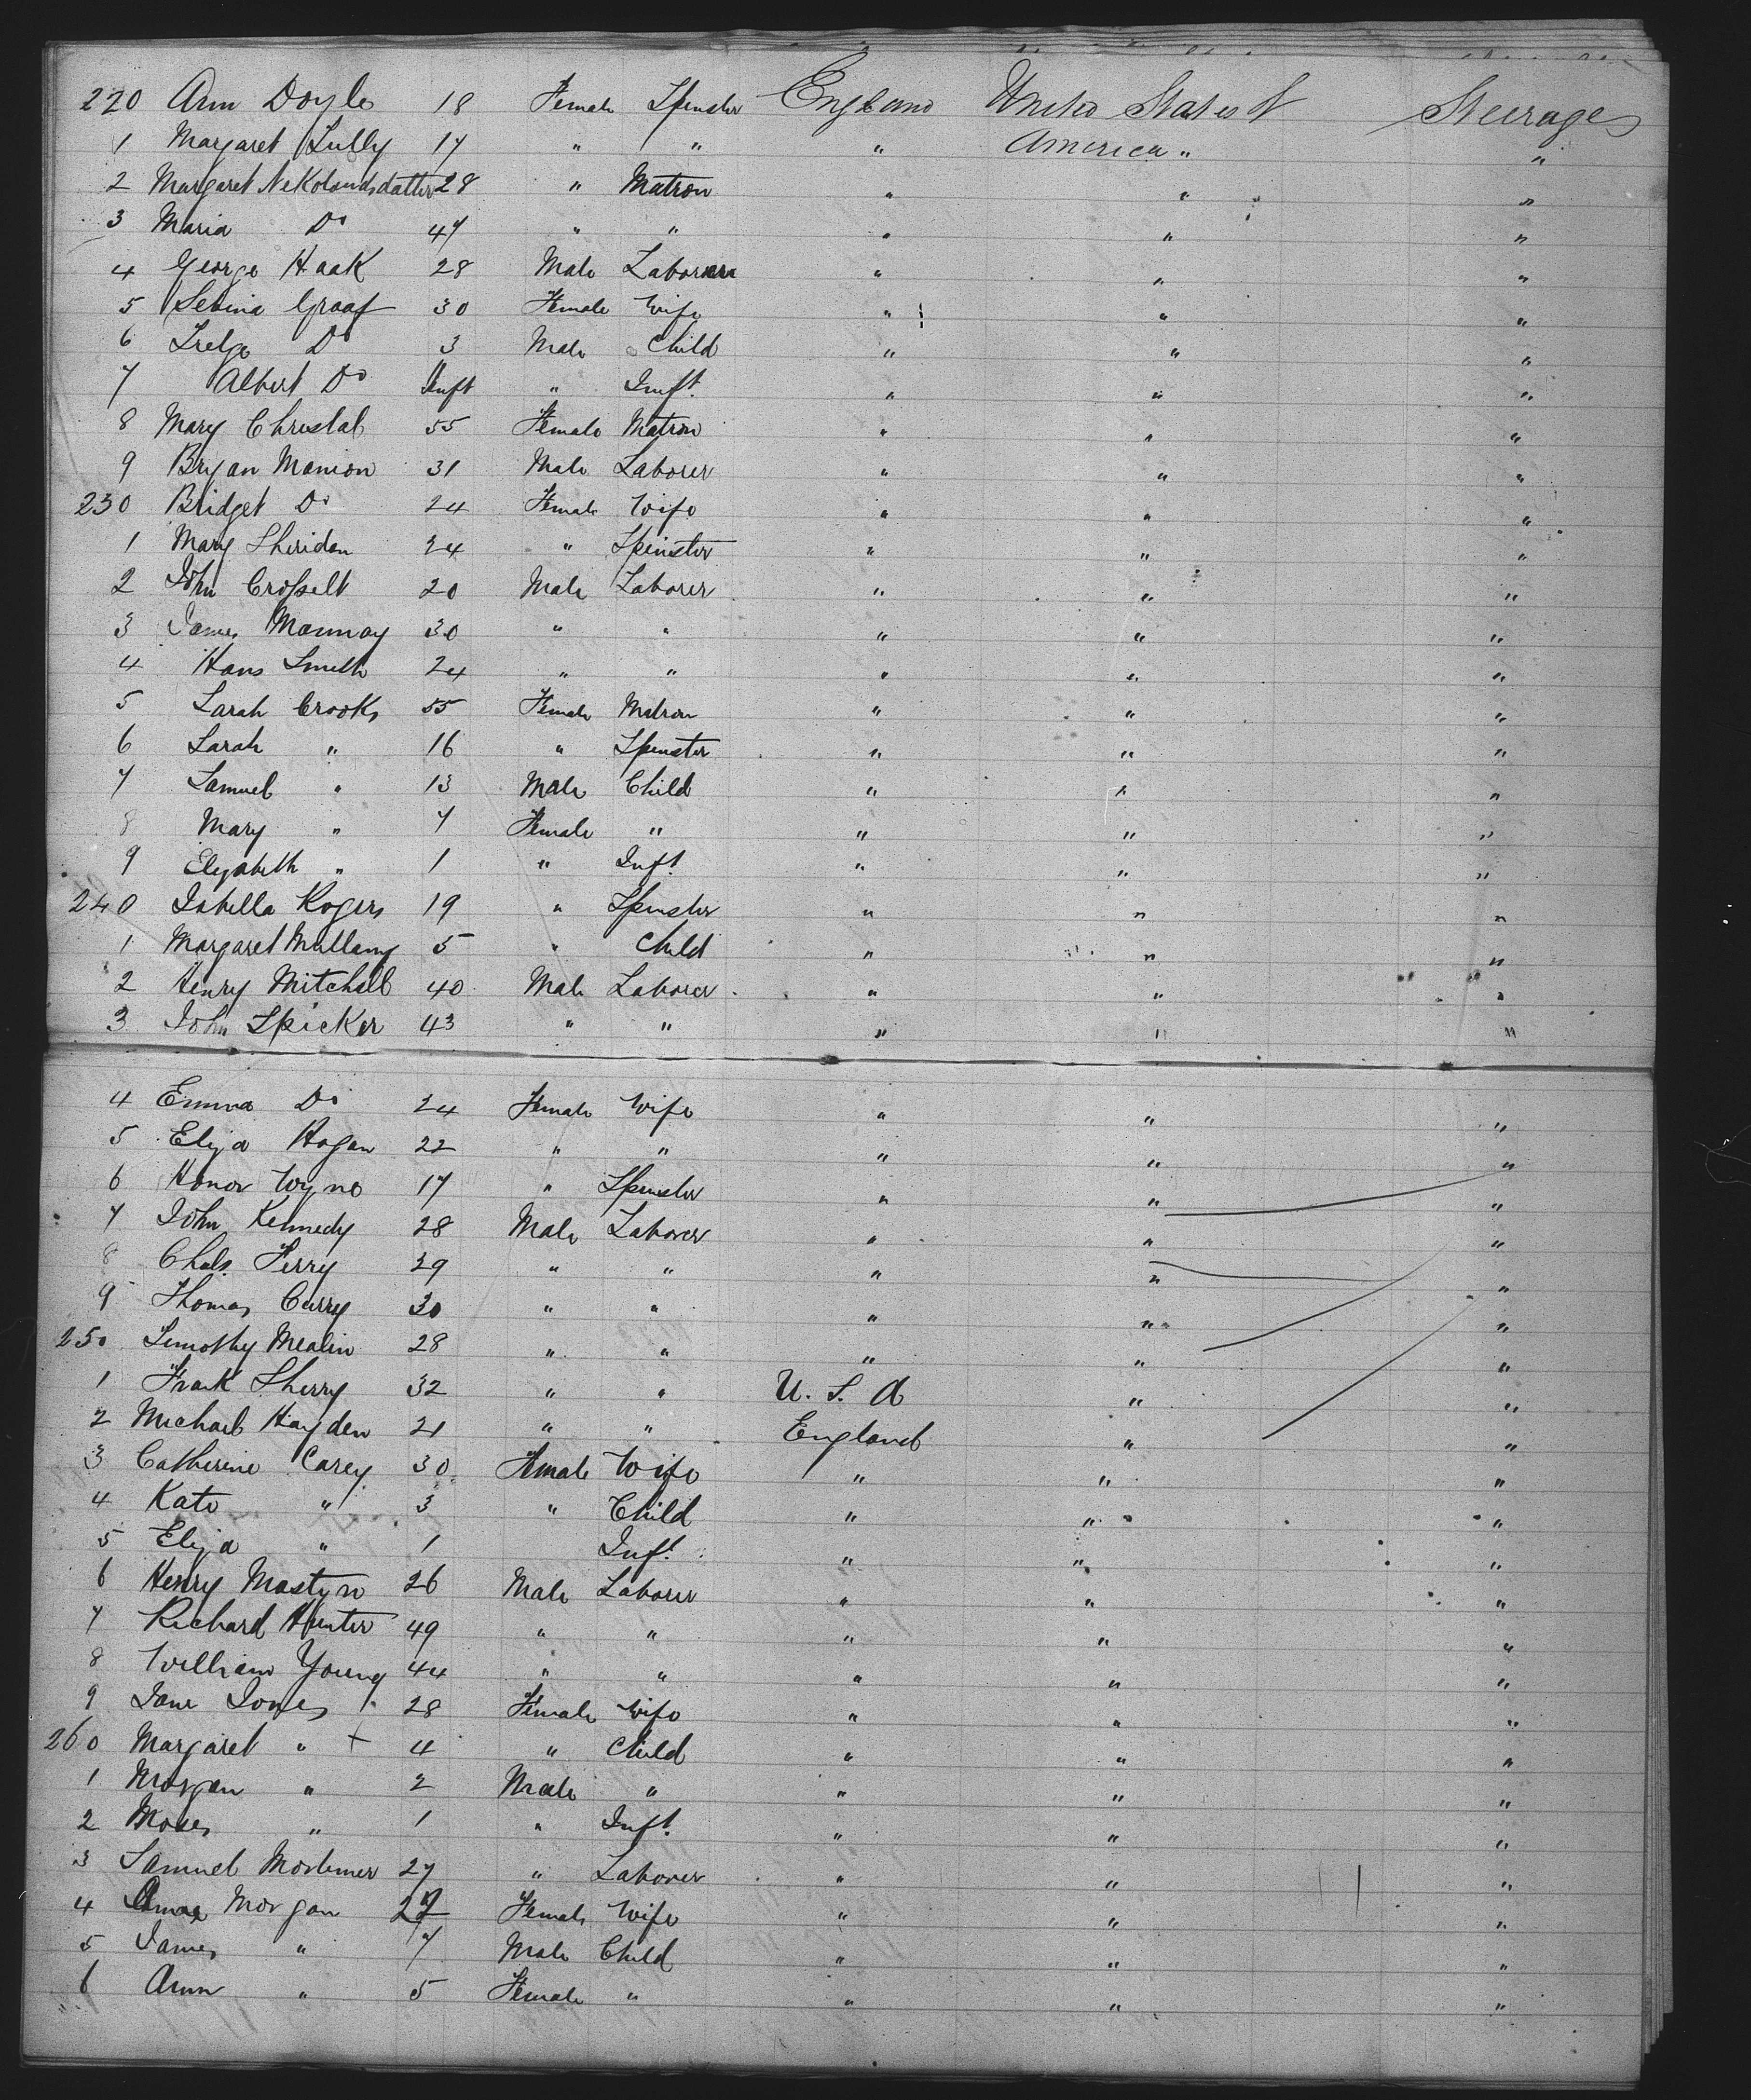 220 Ann Doyle 18 Female Spinster England United States of Steerage
1 Margaret Lully 17 " " " America " "
2 Margaret Nekolandsdatter 28 " Matron " " "
3 Maria Do 47 " " " " "
4 George Haak 28 Male Laborer " " "
5 Sebina Graaf 30 Female Wife " " "
6 Do 3 Male Child " " "
7 Albert Do Inft " Inft. " " "
8 Mary Chrustal 55 Female Matron " " "
9 Bryan Manion 31 Male Laborer " " "
230 Bridget Do 24 Female Wife " " "
1 Mary Sheridan 24 " Spinster " " "
2 John Crosselt 20 Male Laborer " " "
3 James Mannay 30 " " " " "
4 Hans Smith 24 " " " " "
5 Sarah Crooks 55 Female Matron " " "
6 Sarah " 16 " Spinster " " "
7 Samuel " 13 Male Child " " "
8 Mary " 7 Female " " " "
9 Elizabeth " 1 " Inft. " " "
240 Isabella Rogers 19 " Spinster " " "
1 Margaret Mullany 5 " Child " " "
2 Henry Mitchell 40 Male Laborer " " "
3 John Spicker 43 " " " " "
4 Emma Do 24 Female Wife " " "
5 Eliza Hogan 22 " " " " "
6 Honor Wyne 17 " Spinster " " "
7 John Kennedy 28 Male Laborer " " "
8 Chals. Ferry 29 " " " " "
9 Thomas Curry 30 " " " " "
250 Timothy Mealin 28 " " " " "
1 Frank Sherry 32 " " U. S. A " "
2 Michael Hayden 21 " " England " "
3 Catherine Carey 30 Female Wife " " "
4 Kate " 3 " Child " " "
5 Eliza " 1 Inft. " " "
6 Henry Mostyn 26 Male Laborer " " "
7 Richard Hunter 49 " " " " "
8 William Young 44 " " " " "
9 Jane Jones + 28 Female Wife " " "
260 Margaret " + 4 " Child " " "
1 Morgan " 2 Male " " " "
2 Moses " 1 " Inft. " " "
3 Samuel Mortimer 27 " Laborer " " "
4 Morgan Female Wife " " "
5 James " 7 Male Child " " "
6 Ann " 5 Female " " " "